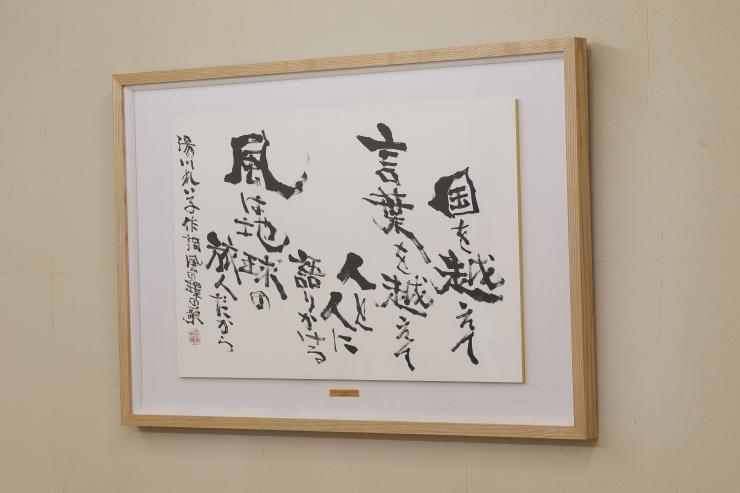 国を越えて
言葉を越えて
人と人に
語りかける
風は地球の
旅人だから
湯川れい子作詞 風